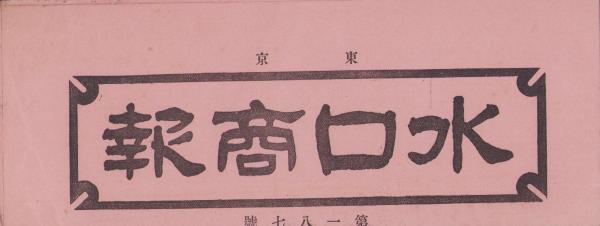 東京
水口商報
第一八七號